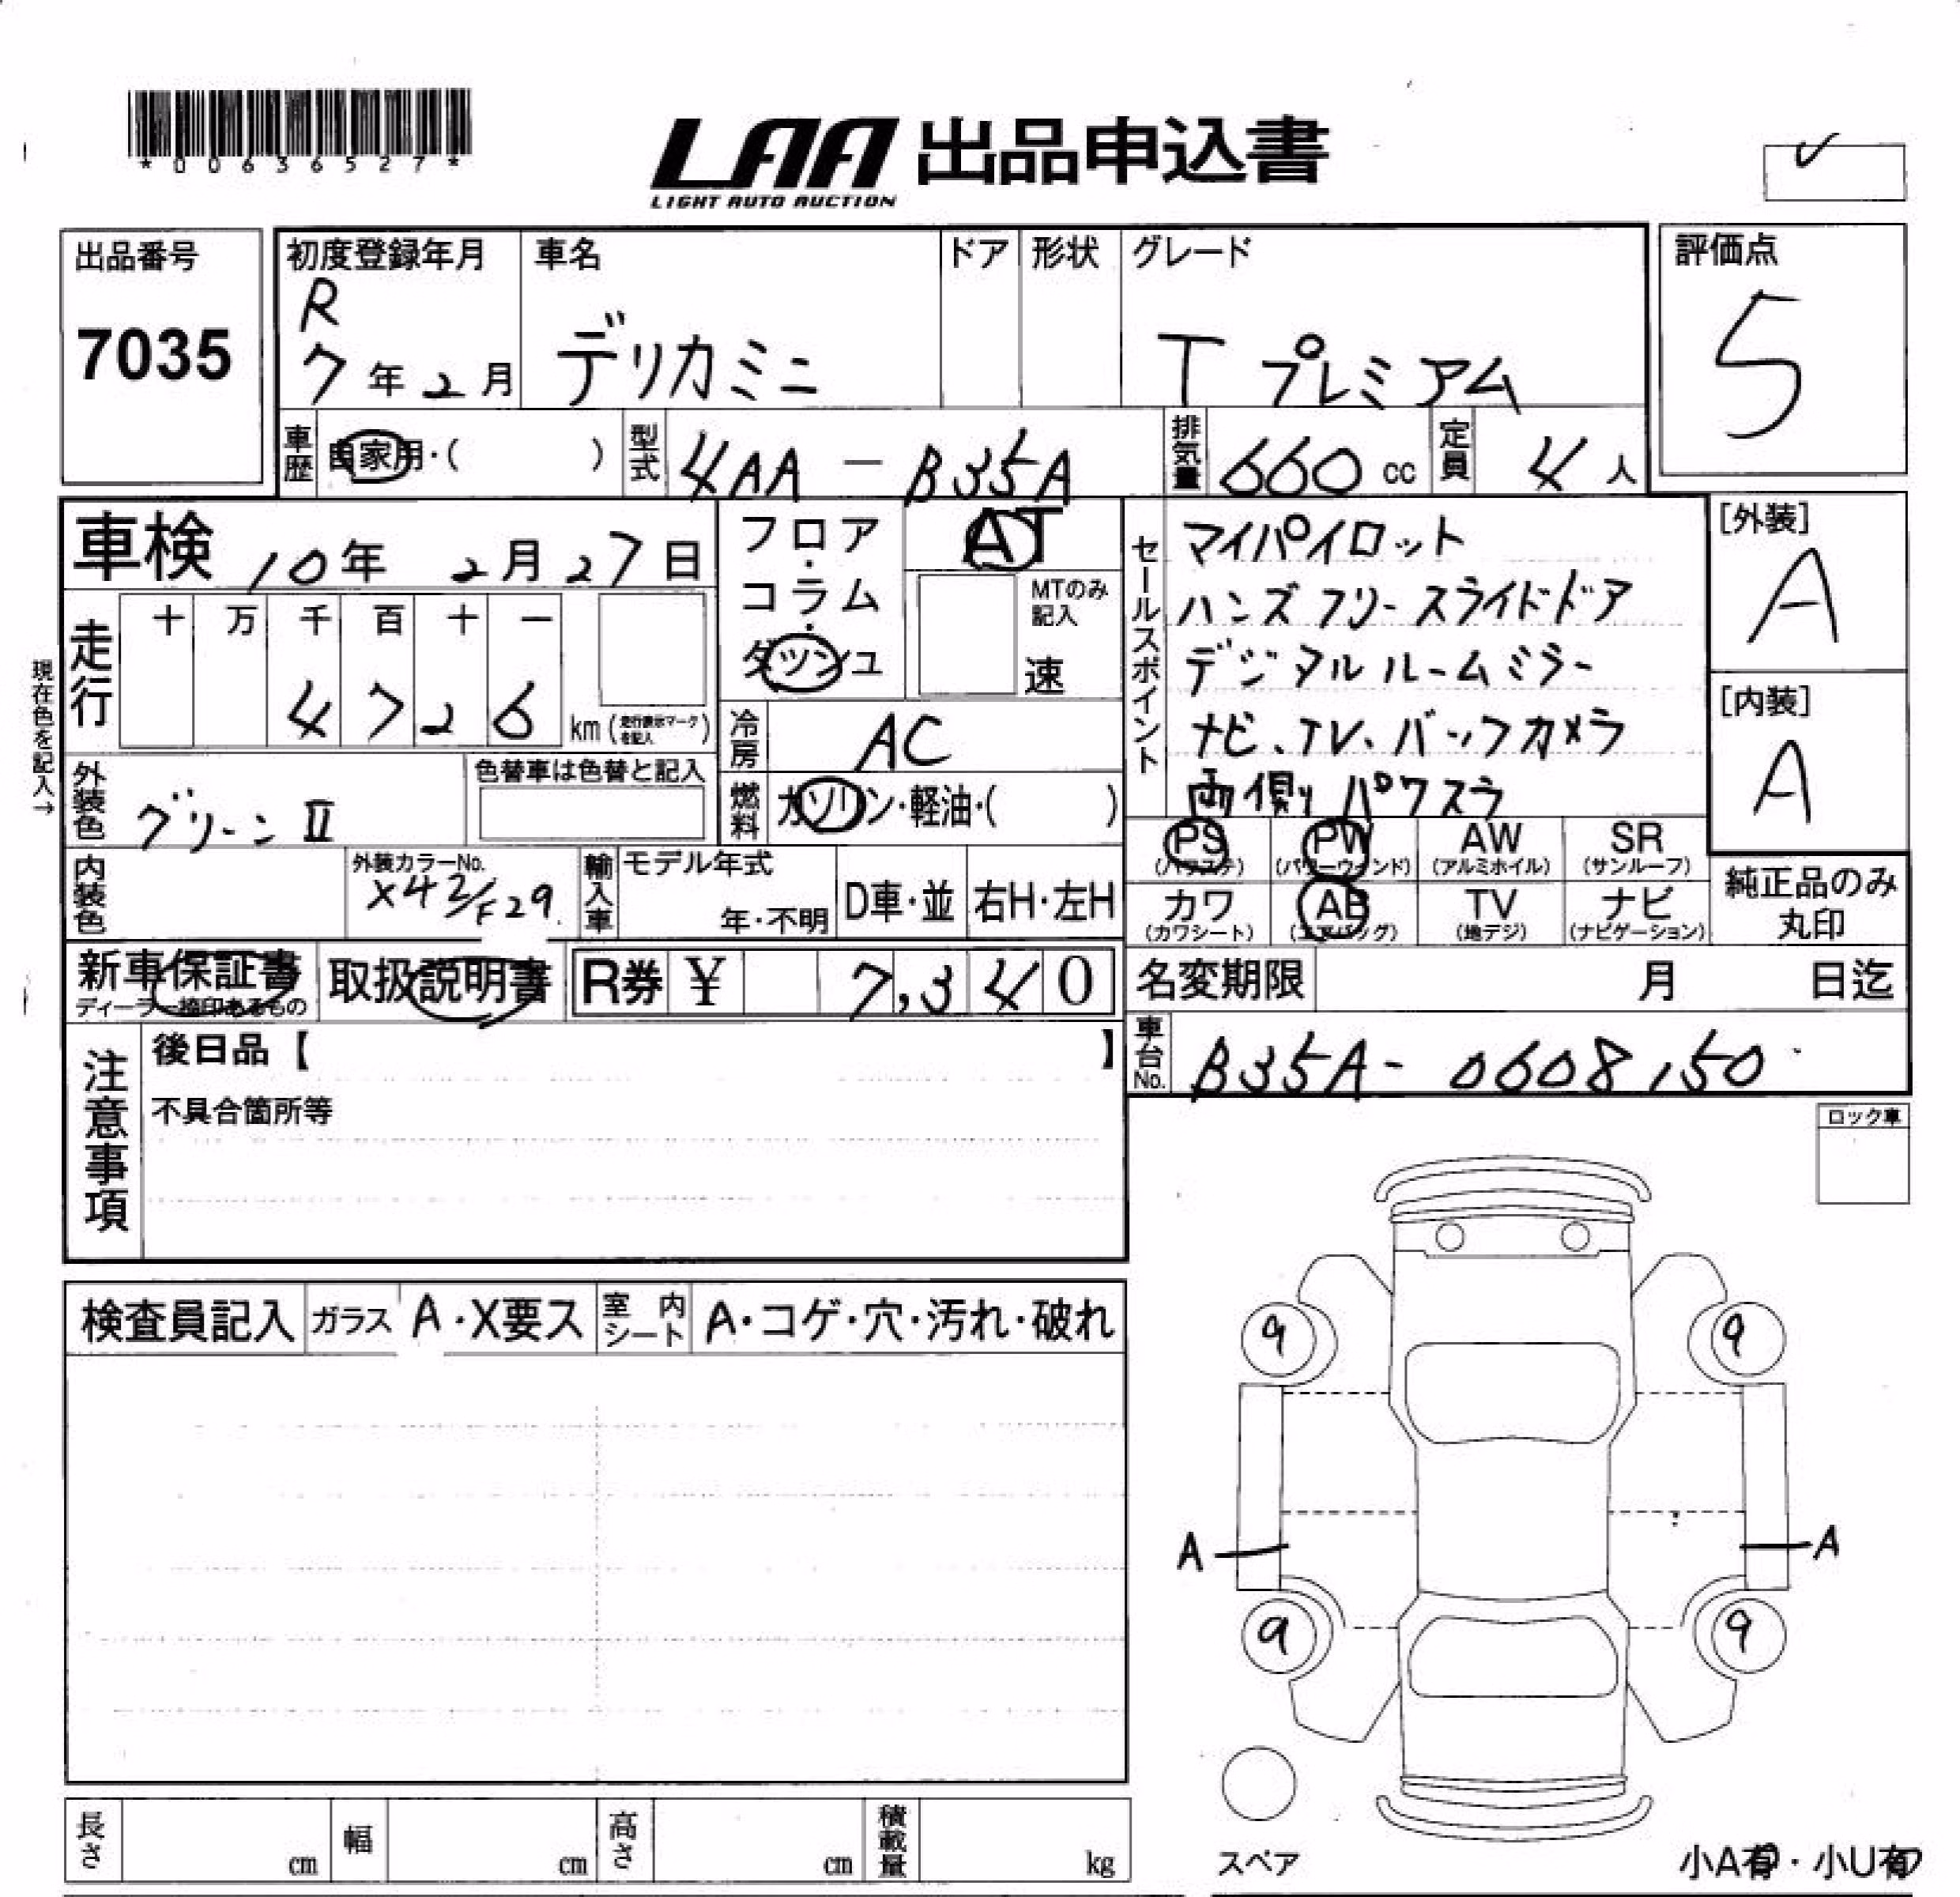 *00636527*
LAA 出品申込書
LIGHT AUTO AUCTION
出品番号
7035
初度登録年月
R
7年2月
車名
デリカミニ
ドア
形状
グレード
T プレミアム
評価点
5
車歴
自家用・( )
型式
4AA-B35A
排気量
660cc
定員
4人
車検
10年 2月27日
フロア・コラム・ダッシュ
AT
MTのみ記入
速
セールスポイント
マイパイロット
ハンズフリースライドドア
デジタルルームミラー
ナビ、TV、バックカメラ
両側パワスラ
[外装]
A
[内装]
A
現在色を記入→
走行
十 万 千 百 十 一
4 7 2 6
km(走行表示マークを記入)
冷房
AC
外装色
グリーンⅡ
色替車は色替と記入
燃料
ガソリン・軽油・( )
PS
(パワステ)
PW
(パワーウィンド)
AW
(アルミホイル)
SR
(サンルーフ)
カワ
(カワシート)
AB
(エアバッグ)
TV
(地デジ)
ナビ
(ナビゲーション)
純正品のみ
丸印
内装色
外装カラーNo.
X42/F29
輸入車
モデル年式
年・不明
D車・並
右H・左H
新車保証書
ディーラー捺印あるもの
取扱説明書
R券 ¥ 7,340
名変期限
月 日迄
車台No.
B35A-0608150
注意事項
後日品【 】
不具合箇所等
ロック車
検査員記入
ガラス
A・X要ス
室内シート
A・コゲ・穴・汚れ・破れ
9
9
A
A
9
9
スペア
小A有・小U有
長さ
cm
幅
cm
高さ
cm
積載量
kg